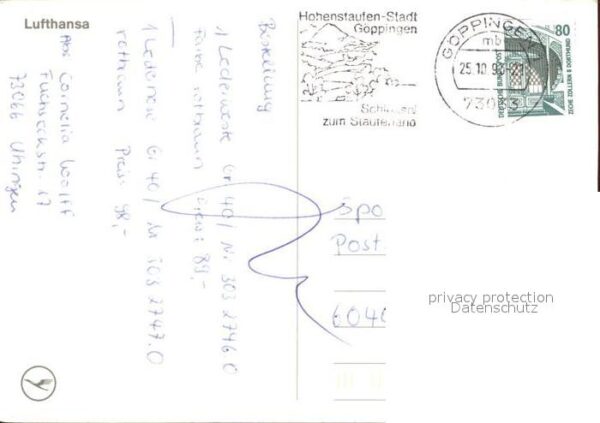 Lufthansa
Hohenstaufen-Stadt
Göppingen
Schlüssel
zum Stauferland
GÖPPINGEN 1
mb
25.10.93
73033
80
DEUTSCHE BUNDESPOST
Bestellung
1 Lederweste Gr 40 / Nr. 303 2746 0
Farbe rotbraun Preis: 89,-
1 Lederweste Gr 40 / Nr 303 2747.0
rotbraun Preis: 98,-
Abs Cornelia Wolff
Fuchseckstr. 17
73066 Uhingen
Spo
Post
6040
privacy protection
Datenschutz